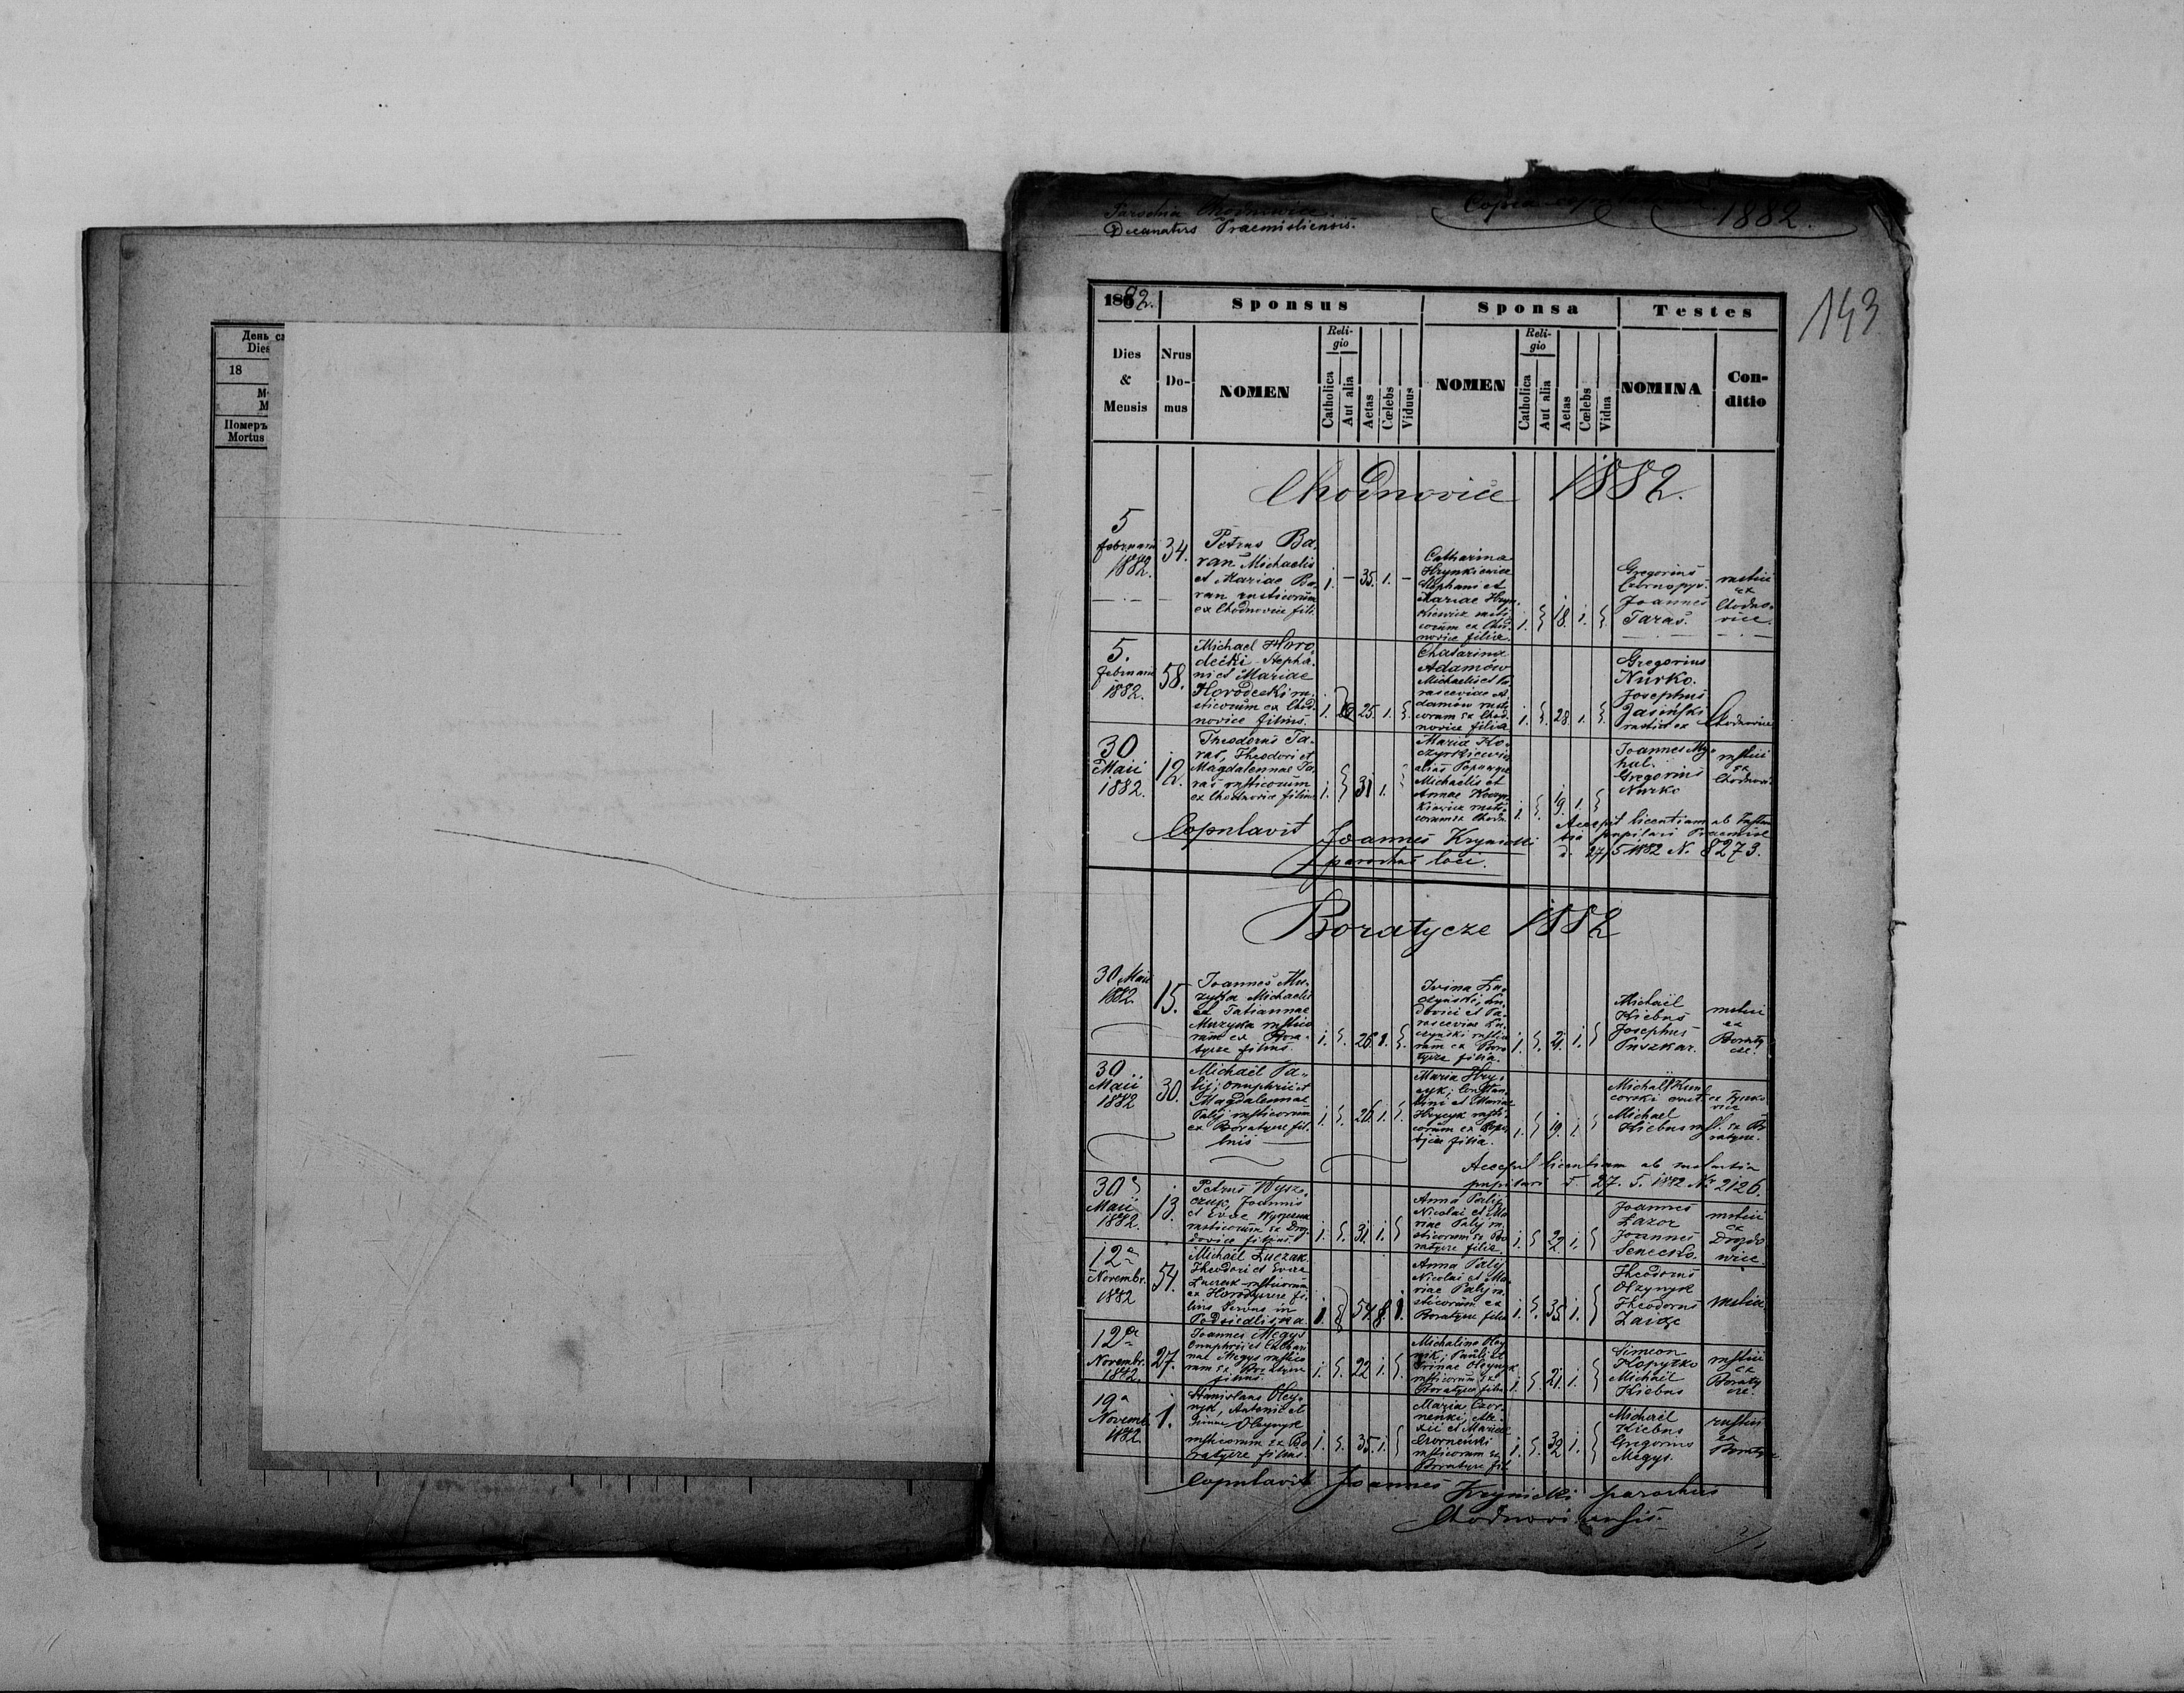 День
Dies
18
M
Померъ
Mortus
Parochia Chodnowice.
Decanatus Praemisliensis.
Copia
1882.
143
1882.
Sponsus
Sponsa
Testes
Dies
&
Mensis
Nrus
Do-
mus
NOMEN
Reli-
gio
Catholica
Aut alia
Aetas
Cœlebs
Viduus
NOMEN
Reli-
gio
Catholica
Aut alia
Aetas
Cœlebs
Vidua
NOMINA
Con-
ditio
Chodnovice 1882.
5
februarii
1882.
34.
Petrus Ba-
ran Michaelis
et Mariae Ba-
ran rusticorum
ex Chodnovice fili.
1. – 35. 1. –
Catharina
Hrynkiewicz
Stephani et
Mariae Hryn-
kiewicz rusti-
corum ex Chod-
novice filia.
1. 18. 1.
Gregorius
Czornopys.
Joannes
Taras.
rustici
ex
Chodno-
vice.
5.
februarii
1882.
58.
Michael Horo-
decki Stepha-
ni et Mariae
Horodecki ru-
sticorum ex Chod-
novice filius.
1. 25. 1.
Chatarina
Adamów
Michaelis et Pa-
rasceviae A-
damów rusti-
corum ex Chod-
novice filia
1. 28. 1.
Gregorius
Nurko.
Josephus
Jasiński
rustici ex
Chodnovice
30
Maii
1882.
12.
Theodorus Ta-
ras, Theodori et
Magdalennae Ta-
ras rusticorum
ex Chodnovice filius
1. 31 1.
Maria Ko-
czyrkiewicz
alias
Michaelis et
Annae Koczyr-
kiewicz rusti-
corum ex Chodn.
1. 19. 1.
Joannes My-
hal.
Gregorius
Nurko
rustici
ex
Chodnovi.
Copulavit Joannes Krynicki
parochus loci.
Accepit licentiam ab Instan-
tia pupilari Praemisl
d. 27/5 1882 N. 8273.
Boratycze 1882
30 Maii
1882.
15.
Joannes Mu-
zyka Michaelis
et Tatiannae
Muzyka rustico
rum ex Bora-
tycze filius.
1. 26 1.
Irina Lu-
czynski, Lu-
dovici et Pa-
rasceviae Lu-
czynski rustico
rum ex Bora-
tycze filia.
1. 21. 1.
Michaël
Kiebus
Josephus
Puszkar.
rustici
ex
Boraty
cze.
30
Maii
1882
30.
Michaël Pa-
lij; Onuphrii et
Magdalennae
Palij rusticorum
ex Boratycze fi-
lius
1. 26. 1.
Maria Hry-
cyk; Constan-
tini et Mariae
Hrycyk rusti-
corum ex
filia.
1. 19. 1.
Michaël
Michael
Kiebus rust. ex Bo
ratycze.
Accepit licentiam ab instantia
pupilari d. 27. 5. 1882 Nr 2126.
30
Maii
1882.
13.
Petrus Wysz-
czuk, Joannis
et Evae Wyszczuk
rusticorum ex Droz
dovice filius.
1. 31. 1.
Anna Palij
Nicolai et Ma-
riae Palij ru-
sticorum ex Bo-
ratycze filia.
1. 22 1.
Joannes
Lazor
Joannes
Senecko.
rustici
ex
Drozdo
wice.
12a
Novembr.
1882
54.
Michaël Łuczak
Theodori et Evae
Łuczak rusticorum
ex Horodyszcze fi-
lius servus in
Podsiedliska.
1. 54.
Anna Palij
Nicolai et Ma-
riae Palij ru-
sticorum ex
Boratycze filia
1. 35. 1.
Theodorus
Olzynyk
Theodorus
Zaidze
rustici
12a
Novembr.
1882.
27.
Joannes Megys
Onuphrii et Cathari
nae Megys rustico
rum ex Boratycze
filius.
1. 22 1.
Michalina Oley-
nik; Pauli et
Irinae Oleynyk
rusticorum ex
Boratycze filia
1. 21. 1.
Simeon
Kopytko
Michaël
Kiebus
rustici
ex
Boraty
cze.
19a
Novemb.
1882.
1.
Stanislaus Oley-
nyk, Antonii et
Oleynyk
rusticorum ex Bo
ratycze filius.
1. 35. 1.
Maria Czor-
nenki, Ale-
xii et Mariae
Czornenki
rusticorum ex
Boratycze fil.
1. 32 1.
Michaël
Kiebus
Gregorius
Megys.
rustici
ex
Boratyc.
Copulavit Joannes Krynicki parochus
Chodnoviensis.